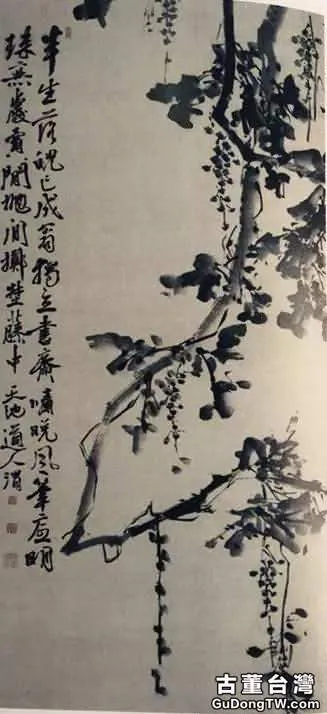 半生落魄已成翁獨立書齋嘯晚風筆底明
珠無處賣閒抛閒擲埜藤中 天池道人渭
古董台灣
GuDongTW.com